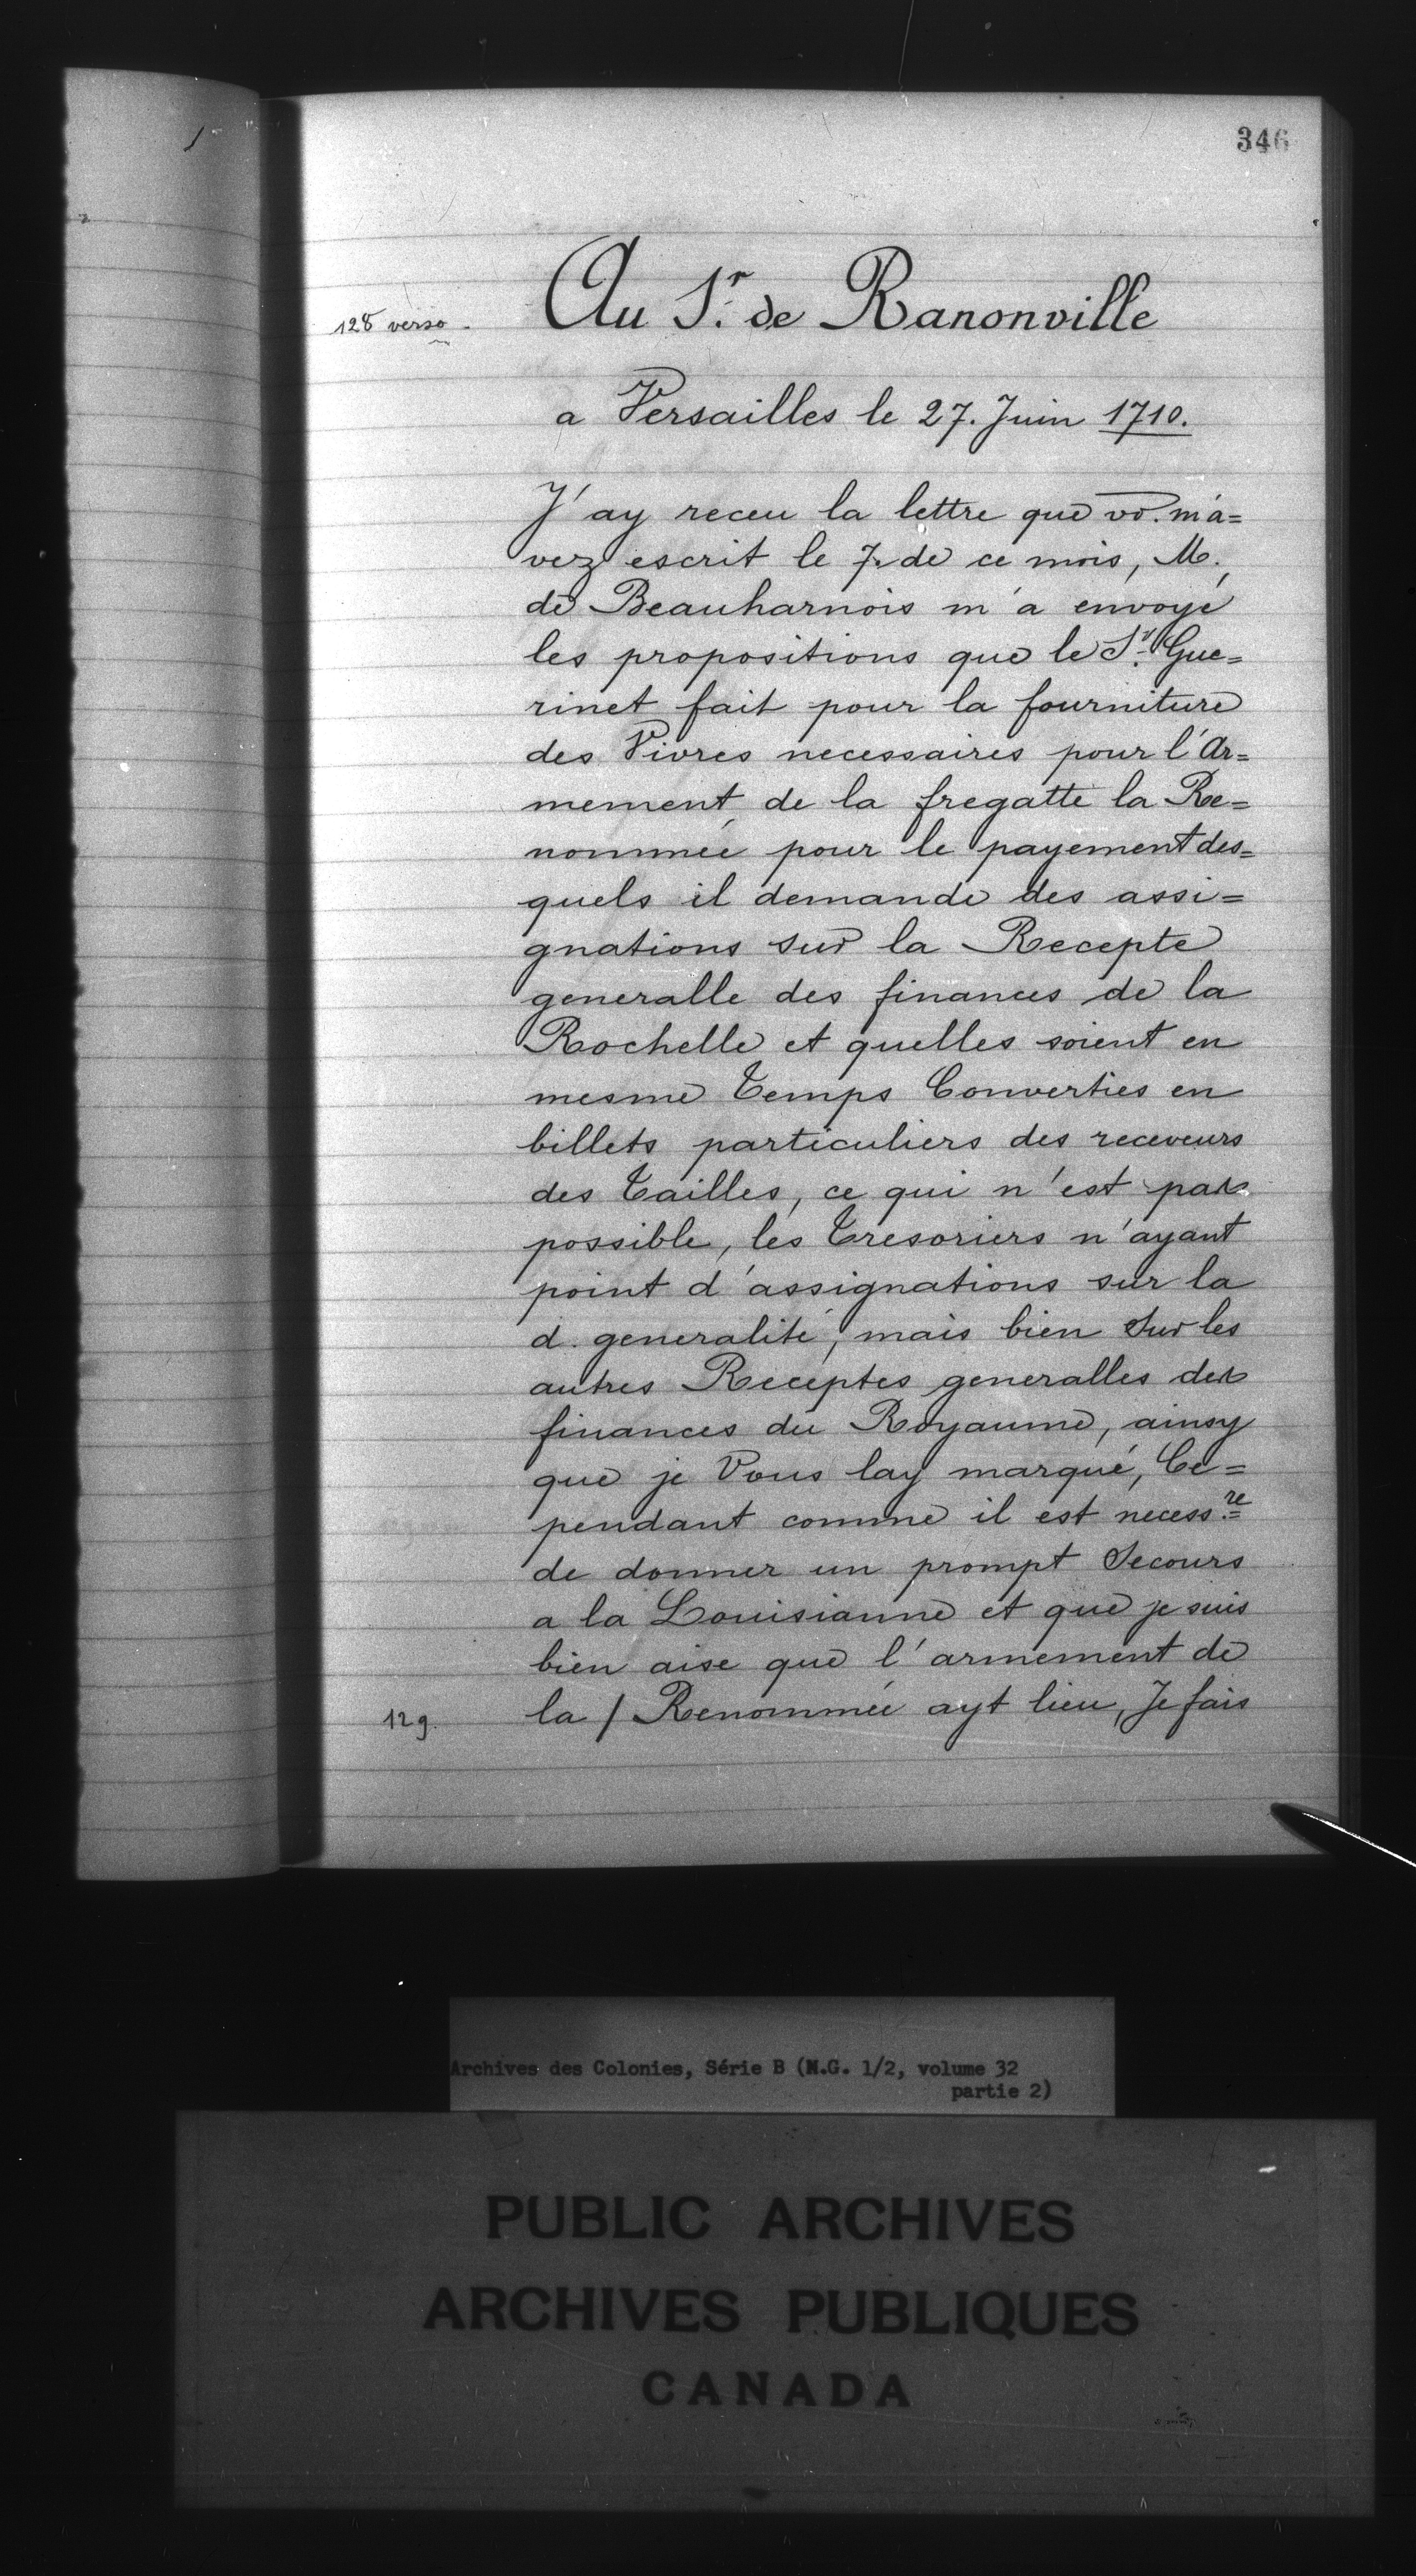 346
128 verso
Au S.r de Ranonville
a Versailles le 27. Juin 1710.
J'ay receu la lettre que vo. m'a=
vez escrit le 7. de ce mois, M.
de Beauharnois m'a envoyé
les propositions que le S.r Gue=
rinet fait pour la fourniture
des Vivres necessaires pour l'Ar=
mement de la fregatte la Re=
nommée pour le payement des=
quels il demande des assi=
gnations sur la Recepte
generalle des finances de la
Rochelle et quelles soient en
mesme Temps Converties en
billets particuliers des receveurs
des Tailles, ce qui n'est pas
possible, les Tresoriers n'ayant
point d'assignations sur la
d. generalité, mais bien Sur les
autres Receptes generalles des
finances du Royaume, ainsy
que je Vous lay marqué, Ce=
pendant comme il est necess.re
de donner un prompt Secours
a la Louisianne et que je suis
bien aise que l'armement de
129 la / Renommée ayt lieu, Je fais
Archives des Colonies, Série B (M.G. 1/2, volume 32
partie 2)
PUBLIC ARCHIVES
ARCHIVES PUBLIQUES
CANADA